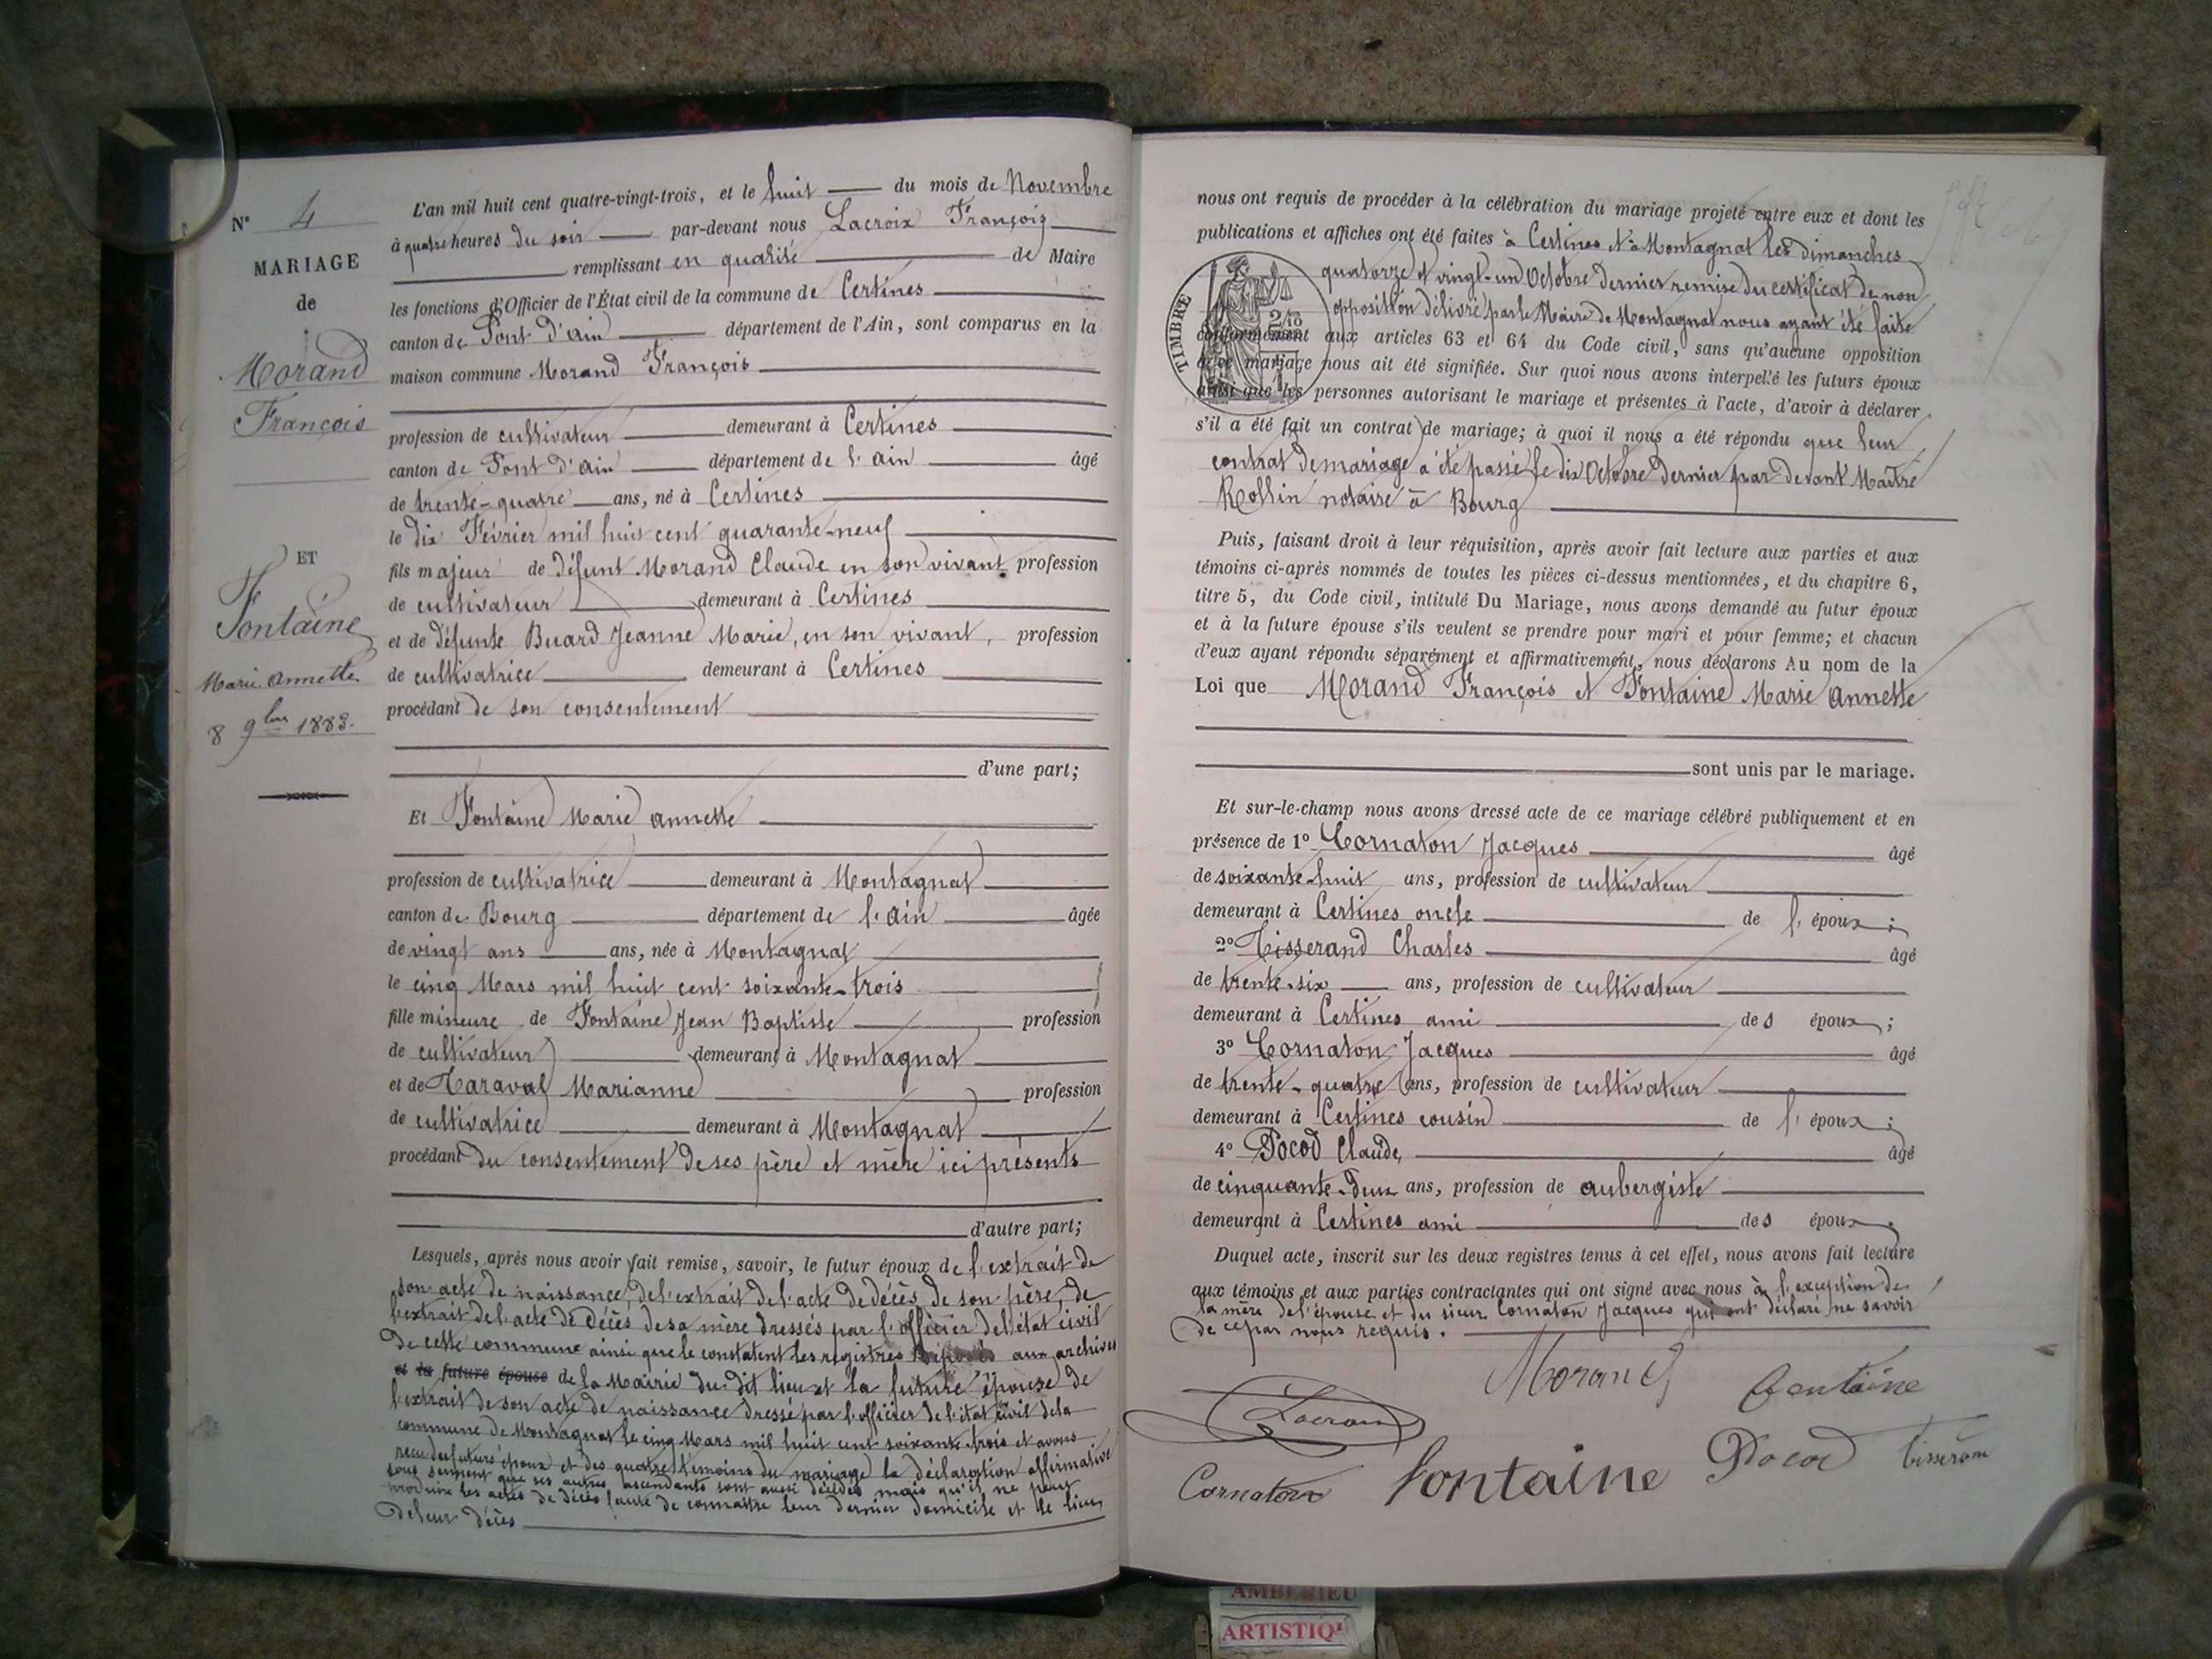 N° 4
MARIAGE
de
Morand
François
ET
Fontaine
Marie Annette
8 9bre 1883.
L'an mil huit cent quatre-vingt-trois, et le huit du mois de Novembre
à quatre heures du soir par-devant nous Lacroix François
remplissant en qualité de Maire
les fonctions d'Officier de l'État civil de la commune de Certines
canton de Pont d'Ain département de l'Ain, sont comparus en la
maison commune Morand François
profession de cultivateur demeurant à Certines
canton de Pont d'Ain département de l'Ain âgé
de trente-quatre ans, né à Certines
le dix Février mil huit cent quarante-neuf
fils majeur de défunt Morand Claude en son vivant profession
de cultivateur demeurant à Certines
et de défunte Buard Jeanne Marie, en son vivant, profession
de cultivatrice demeurant à Certines
procédant de son consentement
d'une part;
Et Fontaine Marie Annette
profession de cultivatrice demeurant à Montagnat
canton de Bourg département de l'Ain âgée
de vingt ans ans, née à Montagnat
le cinq Mars mil huit cent soixante-trois
fille mineure de Fontaine Jean Baptiste profession
de cultivateur demeurant à Montagnat
et de Taraval Marianne profession
de cultivatrice demeurant à Montagnat
procédant du consentement de ses père et mère ici présents
d'autre part;
Lesquels, après nous avoir fait remise, savoir, le futur époux de l'extrait de
son acte de naissance, de l'extrait de l'acte de décès de son père, de
l'extrait de l'acte de décès de sa mère dressés par l'officier de l'état civil
de cette commune ainsi que le constatent les registres déposés aux archives
et la future épouse de la Mairie du dit lieu et la future épouse de
l'extrait de son acte de naissance dressé par l'officier de l'état civil de la
commune de Montagnat le cinq Mars mil huit cent soixante-trois et avons
reçu des futurs époux et des quatre témoins du mariage la déclaration affirmative
sous serment que ses autres ascendants sont aussi décédés mais qu'il ne peut
produire les actes de décès faute de connaître leur dernier domicile et le lieu
de leur décès
nous ont requis de procéder à la célébration du mariage projeté entre eux et dont les
publications et affiches ont été faites à Certines et à Montagnat les dimanches
quatorze et vingt-un Octobre dernier remise du certificat de non
opposition délivré par le Maire de Montagnat nous ayant été faite
TIMBRE
2/10
conformément aux articles 63 et 64 du Code civil, sans qu'aucune opposition
à ce mariage nous ait été signifiée. Sur quoi nous avons interpellé les futurs époux
ainsi que les personnes autorisant le mariage et présentes à l'acte, d'avoir à déclarer
s'il a été fait un contrat de mariage; à quoi il nous a été répondu que leur
contrat de mariage a été passé le dix Octobre dernier par devant Maître
Rollin notaire à Bourg
Puis, faisant droit à leur réquisition, après avoir fait lecture aux parties et aux
témoins ci-après nommés de toutes les pièces ci-dessus mentionnées, et du chapitre 6,
titre 5, du Code civil, intitulé Du Mariage, nous avons demandé au futur époux
et à la future épouse s'ils veulent se prendre pour mari et pour femme; et chacun
d'eux ayant répondu séparément et affirmativement, nous déclarons Au nom de la
Loi que Morand François et Fontaine Marie Annette
sont unis par le mariage.
Et sur-le-champ nous avons dressé acte de ce mariage célébré publiquement et en
présence de 1° Cornaton Jacques âgé
de soixante-huit ans, profession de cultivateur
demeurant à Certines oncle de l'époux;
2° Tisserand Charles âgé
de trente-six ans, profession de cultivateur
demeurant à Certines ami des époux;
3° Cornaton Jacques âgé
de trente-quatre ans, profession de cultivateur
demeurant à Certines cousin de l'époux;
4° Pocod Claude, âgé
de cinquante-deux ans, profession de aubergiste
demeurant à Certines ami des époux.
Duquel acte, inscrit sur les deux registres tenus à cet effet, nous avons fait lecture
aux témoins et aux parties contractantes qui ont signé avec nous à l'exception de
la mère de l'épouse et du sieur Cornaton Jacques qui ont déclaré ne savoir
de ce par nous requis.
Morand Fontaine
Lacroix
Cornaton Fontaine Pocod Tisseram
AMBERIEU
ARTISTIQ